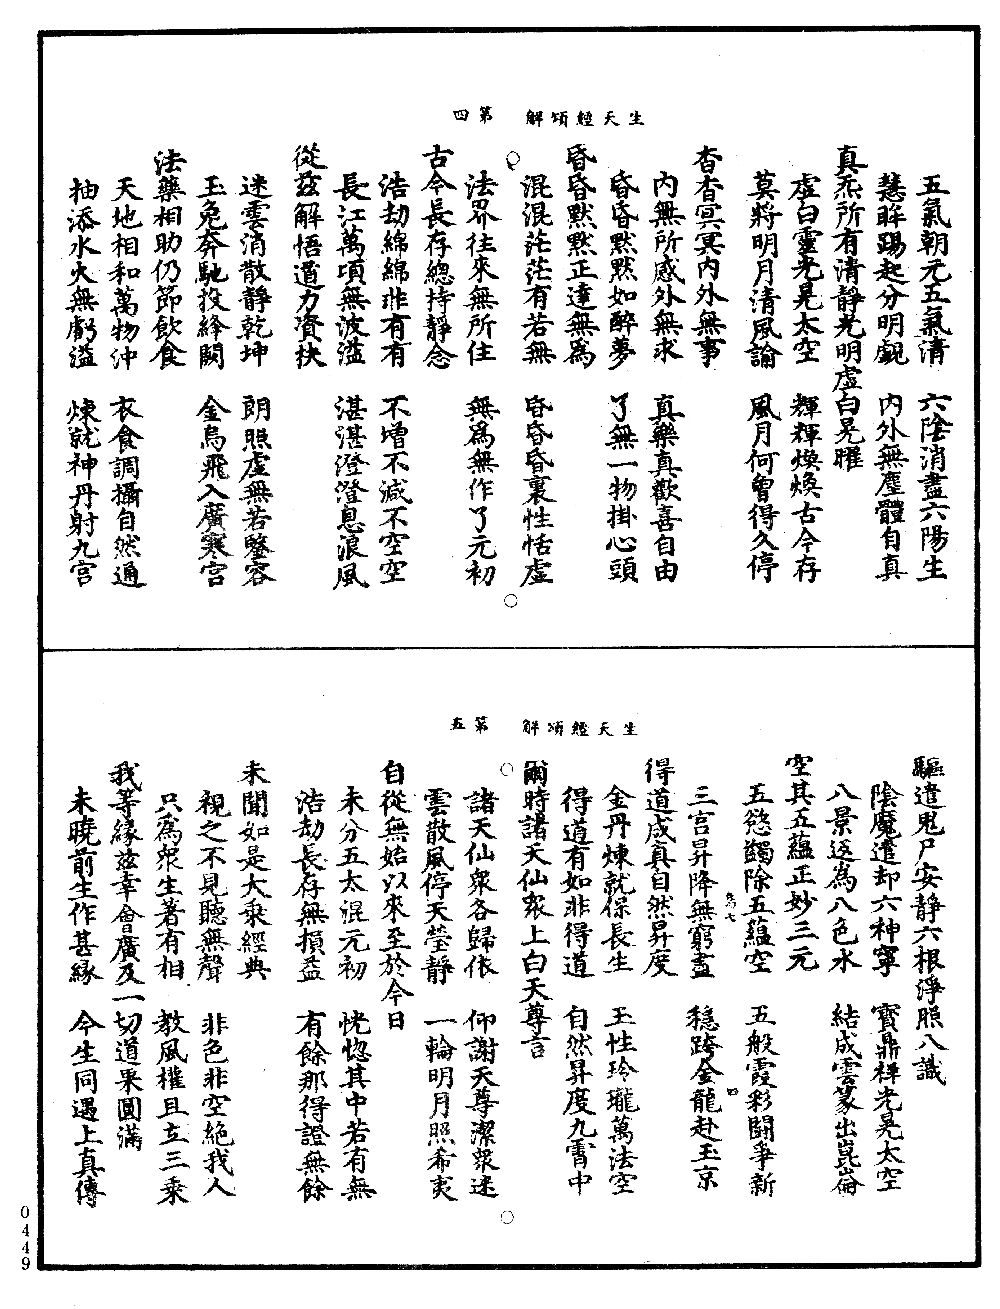 生天經頌解　第四
五氣朝元五氣清　六陰消盡六陽生
慧眸踢起分明覷　內外無塵體自真
真炁所有清靜光明虛白晃曜
虛白靈光晃太空　輝輝煥煥古今存
莫將明月清風論　風月何曾得久停
杳杳冥冥內外無事
內無所感外無求　真樂真歡喜自由
昏昏默默如醉夢　了無一物掛心頭
昏昏默默正達無為
混混茫茫有若無　昏昏昏裏性恬虛
法界往來無所住　無為無作了元初
古今長存總持靜念
浩劫綿綿非有有　不增不減不空空
長江萬頃無波溢　湛湛澄澄息浪風
從茲解悟道力資扶
迷雲消散靜乾坤　朗照虛無若鑒容
玉兔奔馳投絳闕　金烏飛入廣寒宮
法藥相助仍節飲食
天地相和萬物沖　衣食調攝自然通
抽添水火無虧溢　煉就神丹射九宮
生天經頌解　第五
驅遣鬼尸安靜六根淨照八識
陰魔遣却六神寧　寶鼎祥光晃太空
八景返為八色水　結成雲篆出崑崙
空其五蘊正妙三元
五慾蠲除五蘊空　五般霞彩鬭爭新
三宮昇降無窮盡　穩跨金龍赴玉京
得道成真自然昇度
金丹煉就保長生　玉性玲瓏萬法空
得道有如非得道　自然昇度九霄中
爾時諸天仙眾上白天尊言
諸天仙眾各歸依　仰謝天尊潔眾迷
雲散風停天瑩靜　一輪明月照希夷
自從無始以來至於今日
未分五太混元初　恍惚其中若有無
浩劫長存無損益　有餘那得證無餘
未聞如是大乘經典
視之不見聽無聲　非色非空絕我人
只為眾生著有相　教風權且立三乘
我等緣茲幸會廣及一切道果圓滿
未曉前生作甚緣　今生同遇上真傳
0449